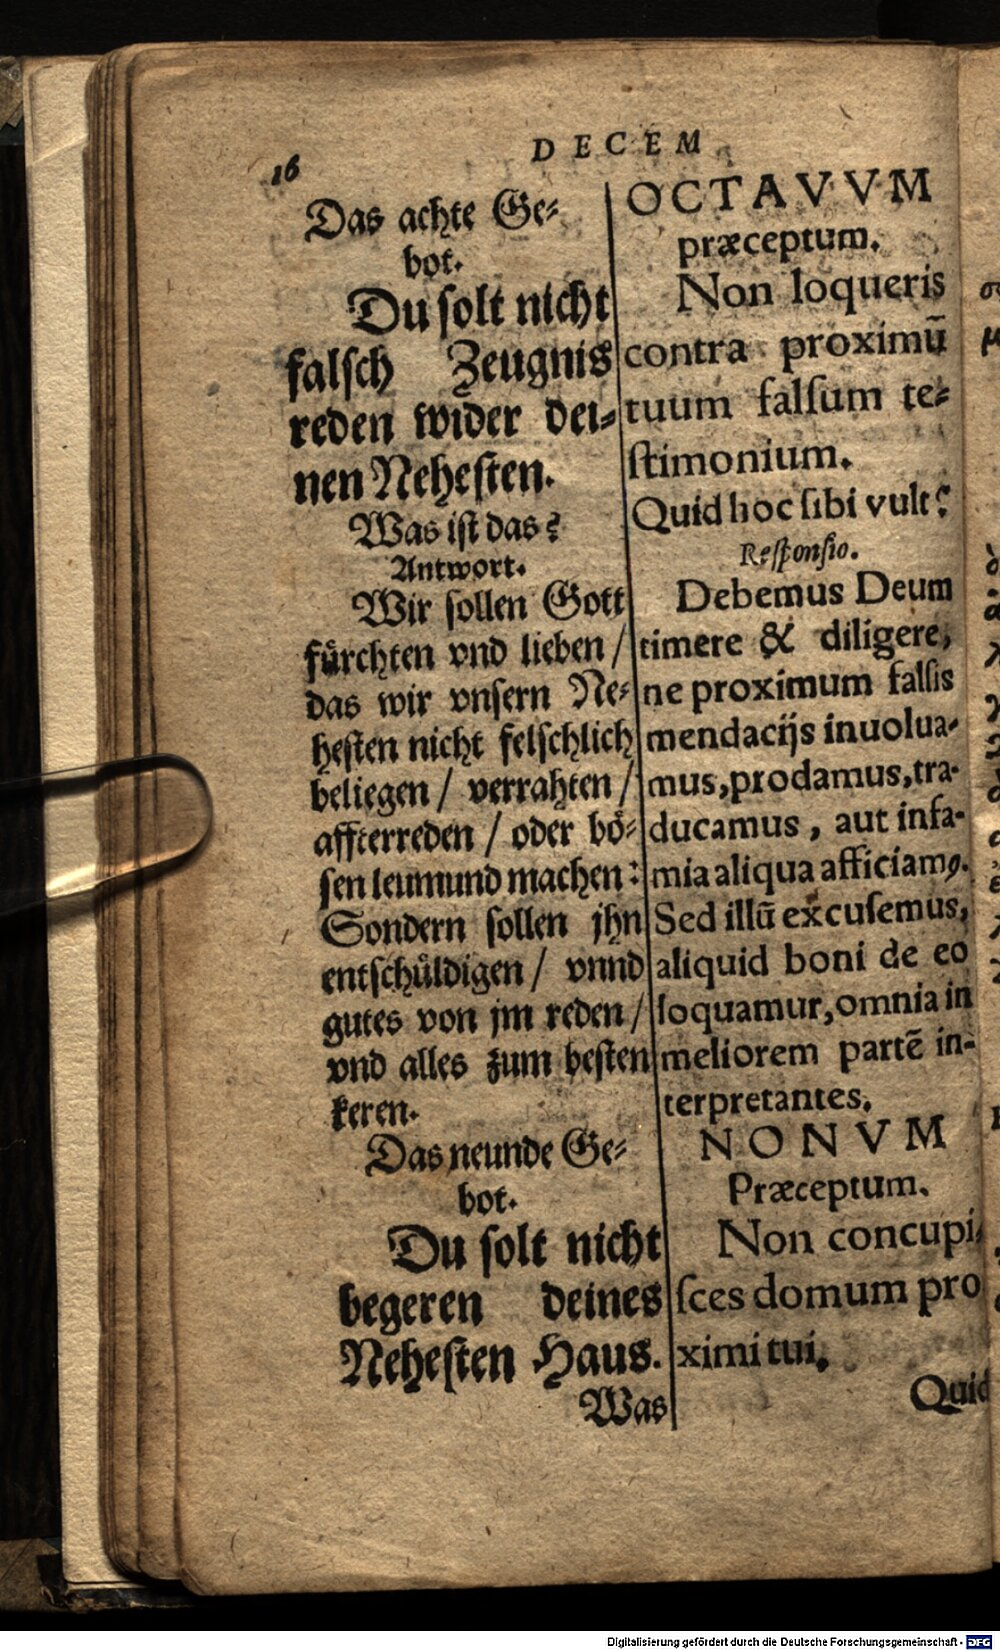 16
DECEM
Das achte Ge⸗
bot.
Du solt nicht
falsch Zeugnis
reden wider dei⸗
nen Nehesten.
Was ist das?
Antwort.
Wir sollen Gott
fürchten vnd lieben /
das wir vnsern Ne⸗
hesten nicht felschlich
beliegen / verrahten /
affterreden / oder bö⸗
sen leumund machen:
Sondern sollen jhn
entschüldigen / vnnd
gutes von jm reden /
vnd alles zum besten
keren.
Das neunde Ge⸗
bot.
Du solt nicht
begeren deines
Nehesten Haus.
Was
OCTAVVM
præceptum.
Non loqueris
contra proximū
tuum falſum te⸗
ſtimonium.
Quid hoc ſibi vult?
Reſponſio.
Debemus Deum
timere & diligere,
ne proximum falſis
mendacijs inuolua-
mus, prodamus, tra-
ducamus, aut infa-
mia aliqua afficiamꝰ.
Sed illū excuſemus,
aliquid boni de eo
loquamur, omnia in
meliorem partē in-
terpretantes.
NONVM
Præceptum.
Non concupi-
ſces domum pro
ximi tui.
Quid
Digitalisierung gefördert durch die Deutsche Forschungsgemeinschaft - DFG